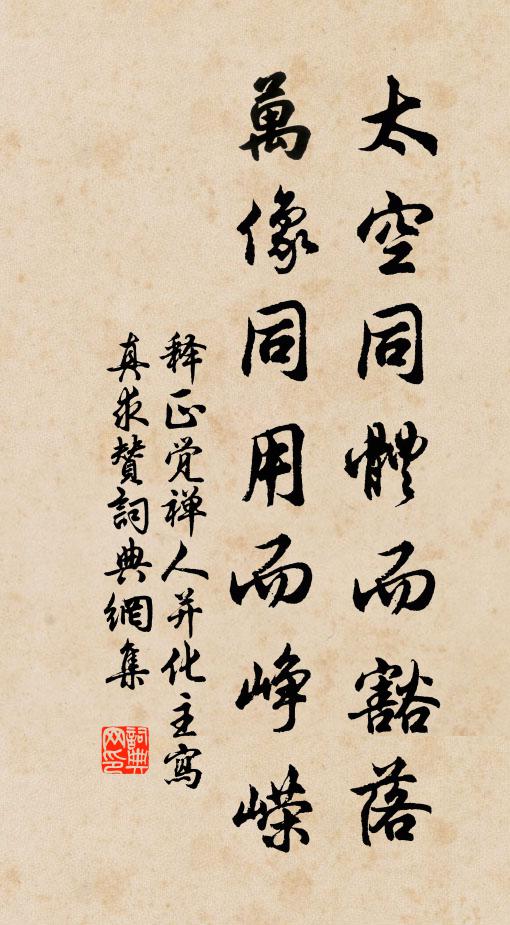 太空同體而豁落
萬像同用而峥嵘
释正觉禅人并化主寫
真求赞詞典網集
詞典网印